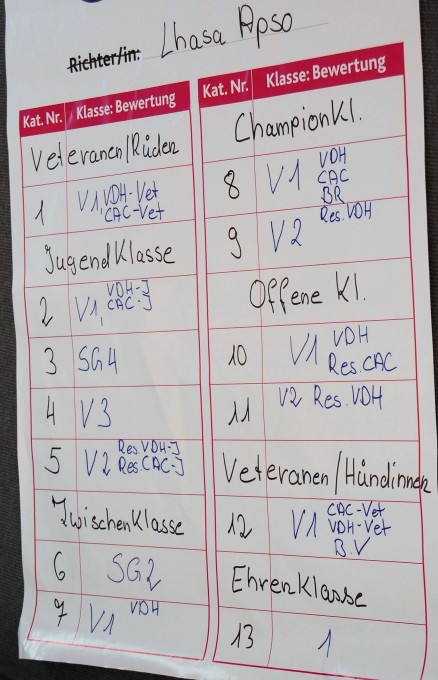 Richter/in: Lhasa Apso
Kat. Nr. Klasse: Bewertung
Veteranen/Rüden
1 V1, VDH-Vet
CAC-Vet
Jugend Klasse
2 V1, VDH-J
CAC-J
3 SG4
4 V3
5 V2 Res. VDH-J
Res. CAC-J
Zwischen Klasse
6 SG2
7 V1 VDH
Kat. Nr. Klasse: Bewertung
Champion Kl.
8 V1 VDH
CAC
BR
9 V2 Res. VDH
Offene Kl.
10 V1 VDH
Res. CAC
11 V2 Res. VDH
Veteranen/Hündinnen
12 V1 CAC-Vet
VDH-Vet
B.V
Ehren Klasse
13 1